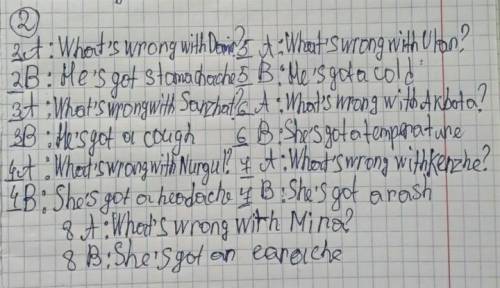 ②
2A: What's wrong with Damir? 5 A: What's wrong with Ulan?
2B: He's got stomachache 5 B: He's got a cold
3A: What's wrong with Sanzhat? 6 A: What's wrong with Akbota?
3B: He's got a cough 6 B: She's got a temperature
4A: What's wrong with Nurgul? 7 A: What's wrong with Kenzhe?
4B: She's got a headache 7 B: She's got a rash
8 A: What's wrong with Mina?
8 B: She's got an earache